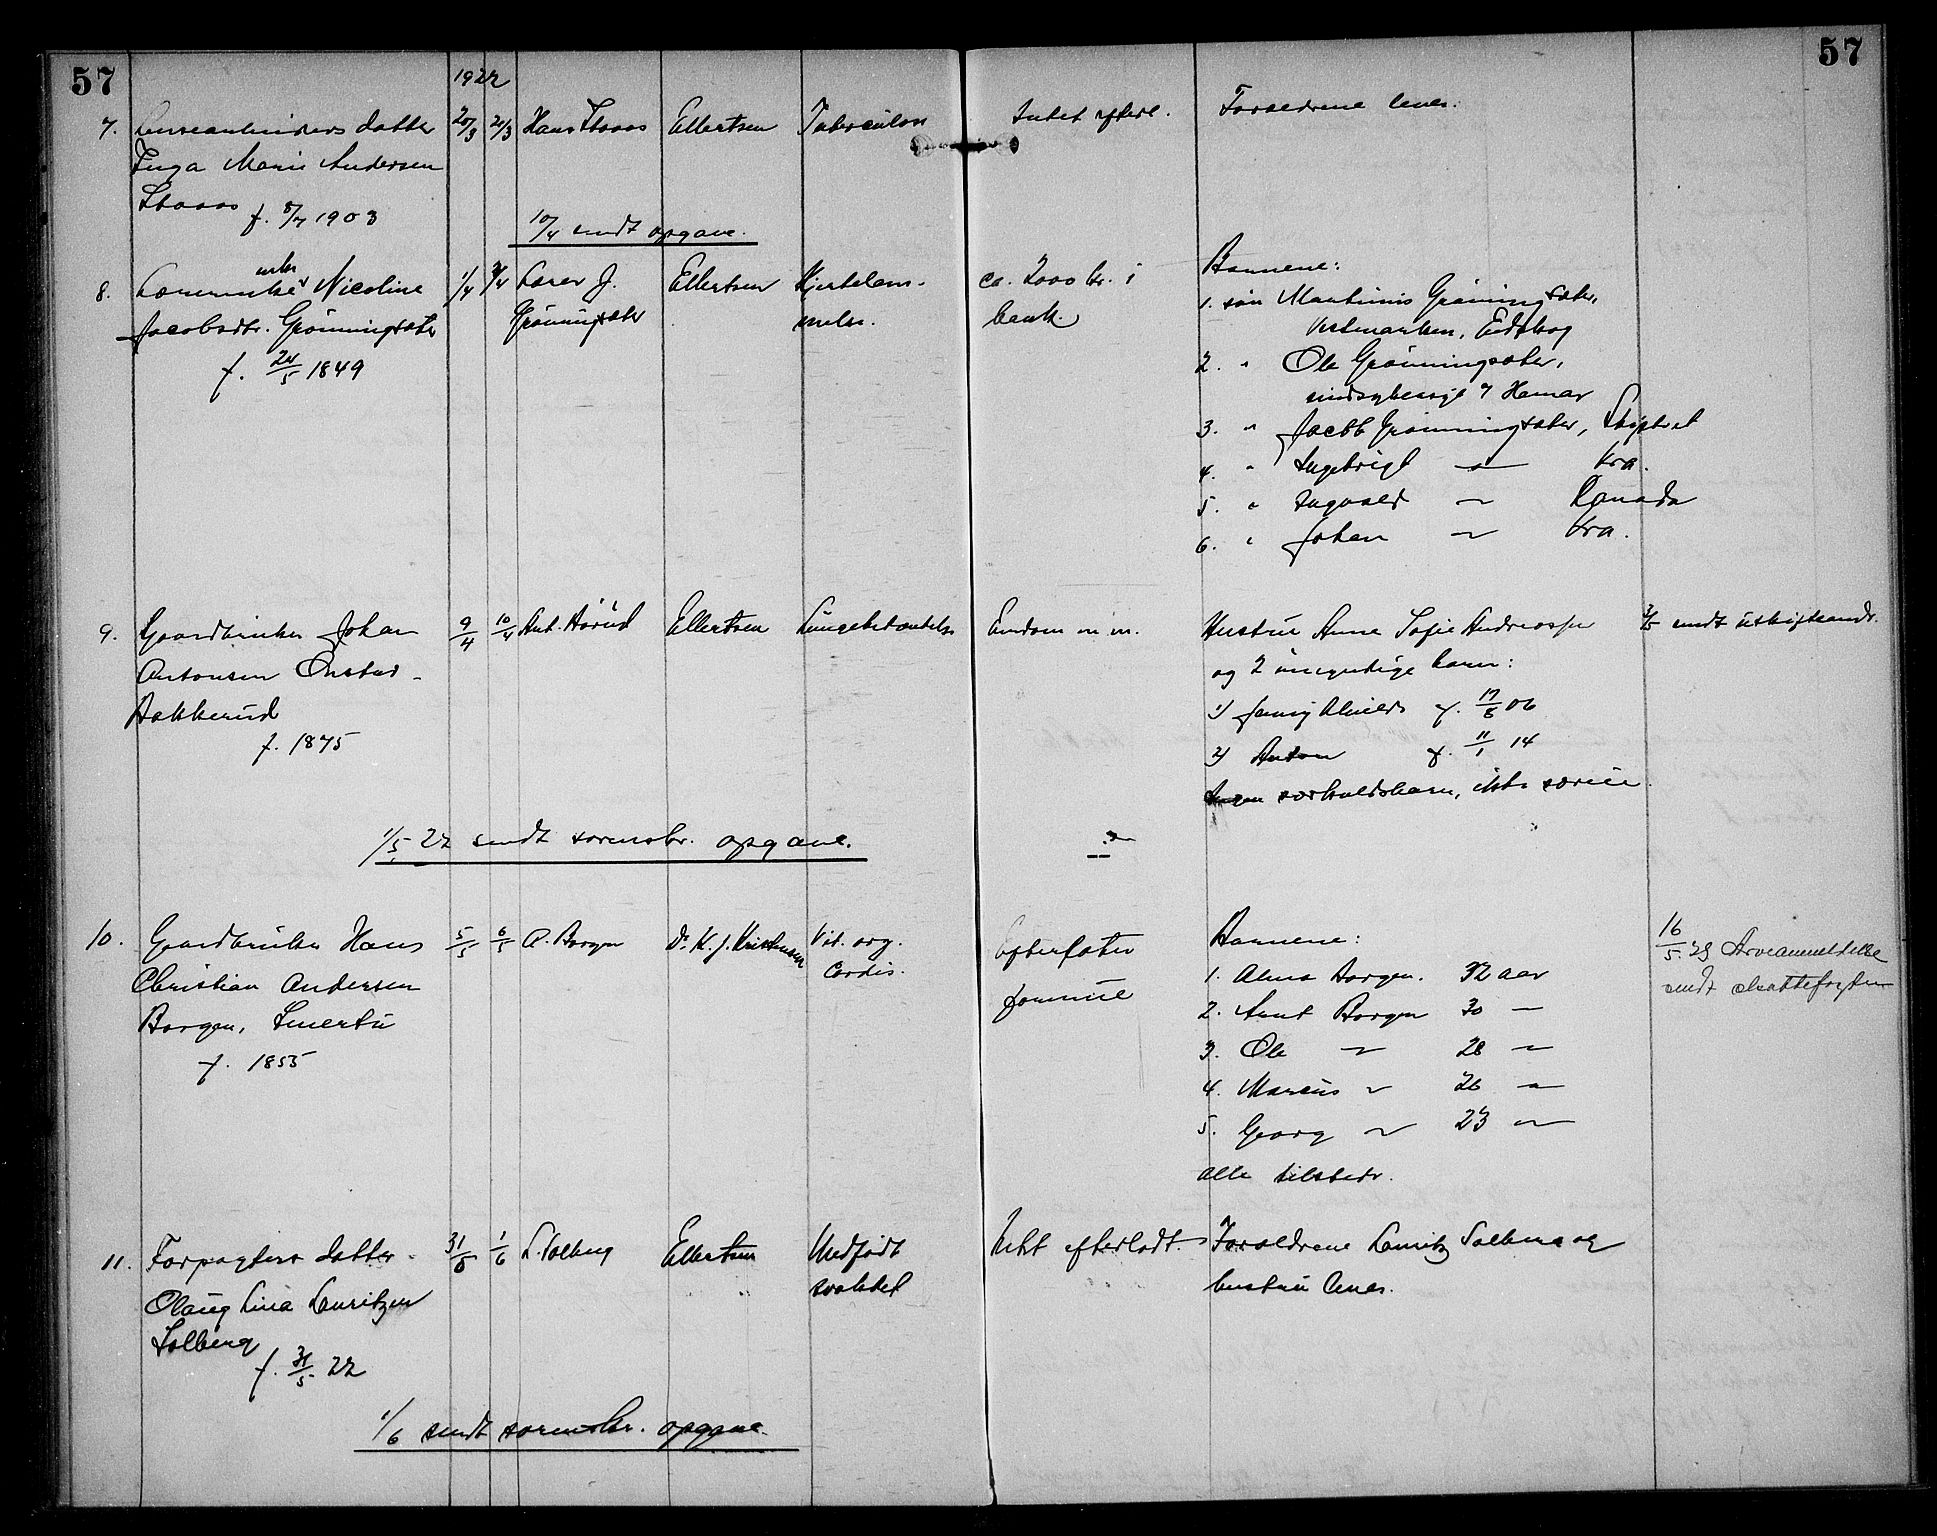 57
57
1922
7. datter 20/3 21/3 Hans Ellertsen Tuberculose Intet efterl. Forældrene lever.
Inga Marie Andersen
f. 8/7 1903
10/4 sendt opgave.
enke
8. Nicoline 1/4 3/4 Lars J. Ellertsen Hjertelam- ca. 2000 kr. i Barnene:
Jacobsdtr. Grönningsæter Grönningsæter melse. bank. 1. søn Martinius Grönningsæter,
Vestmarken, Eidskog
f. 24/5 1849 2. " Ole Grönningsæter,
sindsykeasyl Hamar
3. " Jacob Grönningsæter,
4. " Ingebrigt — Kra.
5. " Ingvald — Kanada
6. " Johan — Kra.
9. Gaardbruker Johan 9/4 10/4 Ant. Ellertsen Lungebetændelse Eiendom m.m. Hustru Anne Sofie sendt
Antonsen Onstad - og 2 umyndige barn:
Aakkerud 1) f. 17/8 06
f. 1875 2) Anton f. 11/1 14
Ingen særkuldsbarn, ikke særeie
1/5 22 sendt sorenskr. opgave.
10. Gaardbruker Hans 5/5 6/5 A. Borgen Dr. K. J. Kristensen Vit. org. Efterlater Barnene: 16/5 23 Arveanmeldelse
Christian Andersen Cordis. formue 1. Alma Borgen. 32 aar sendt skattefogden
Borgen, 2. Arnt Borgen 30 —
f. 1855 3. Ole — 28 —
4. Marcus — 26 —
5. Georg — 23 —
alle tilstede.
11. Forpagters datter - 31/5 1/6 L. Solberg Ellertsen Medfødt Intet efterladt. Forældrene Lauritz Solberg og
Olaug Lina Lauritzen svakhet hustru lever.
Solberg
f. 31/5 22
1/6 sendt sorenskr. opgave.